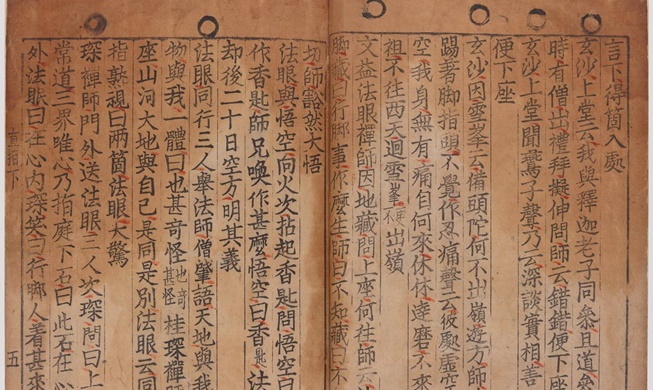 言下得箇入處
玄沙上堂云我與釋迦老子同叅且道叅
時有僧出禮拜擬伸問師云錯錯便下座
玄沙上堂聞鷰子聲乃云深談實相善
便下座
玄沙因雪峯云備頭陀何不出嶺遊方師
踢著脚指頭不覺作忍痛聲云彼歐虛空
空我身無有痛自何來休休達磨不來
祖不往西天迴雪峯更不出嶺
文益法眼禪師因地藏問上座何往師云
脚藏曰行脚事作麽生師曰不知藏曰不
切師豁然大悟
法眼與悟空向火次拈起香匙問悟空曰
作香匙師兄喚作甚麽悟空曰香匙法
却後二十日空方明其義
法眼同行三人舉法師僧肇語天地與我
物與我一體曰也甚奇怪也甚奇怪桂琛禪
座山河大地與自己是同是別法眼云同
指熟視曰兩箇法眼大驚
琛禪師門外送法眼三人次琛問曰上
常道三界唯心乃指庭下石曰此石在心
外法眼曰在心內琛笑曰行脚人著甚來
直指下 五